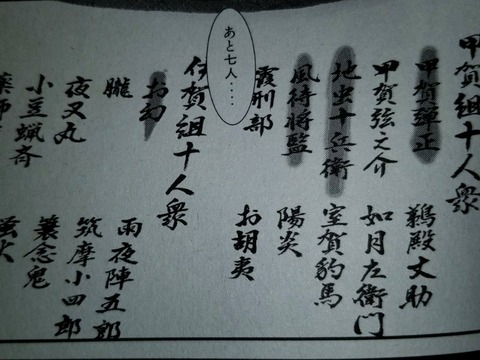 甲賀組十人衆
甲賀彈正 鵜殿丈助
甲賀弦之介 如月左衛門
地虫十兵衛 室賀豹馬
風待將監 陽炎
霞刑部 お胡夷
あと七人・・・
伊賀組十人衆
お幻
朧 雨夜陣五郎
夜叉丸 筑摩小四郎
小豆蝋斎 蓑念鬼
薬師 螢火